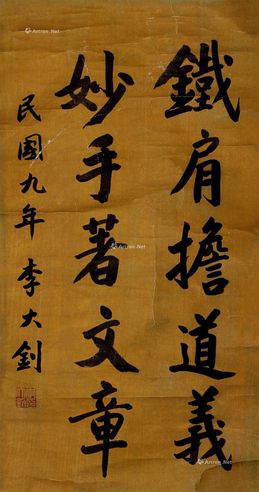 鐵肩擔道義
妙手著文章
民國九年 李大釗
Artron.Net
Artron.Net
Artron.Net